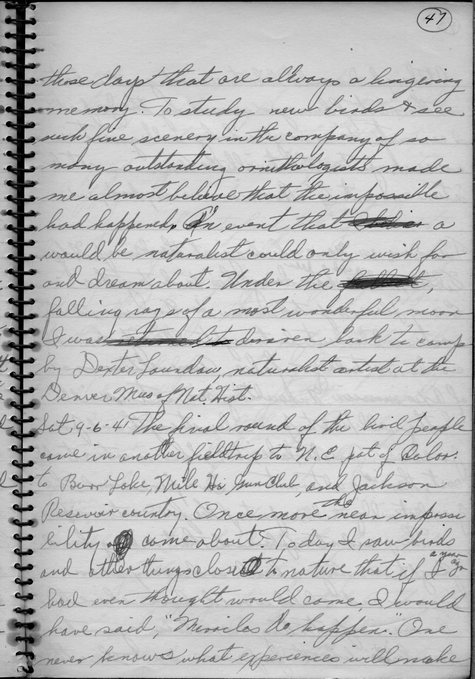 47
those days that are always a lingering
memory. To study new birds & see
such fine scenery in the company of so
many outstanding ornithologists made
me almost believe that the impossible
had happened. An event that a
would be naturalist could only wish for
and dream about. Under the
falling rays of a most wonderful moon
I was driven back to camp
by Dexter naturalist artist at the
Denver Mus of Nat. Hist.
Sat 9-6-41 The final round of the bird people
came in another field trip to N.E. pat of Color.
to Barr Lake, Mile Hi Gun Club, and Jackson
Reservoir country. Once more the near impossi
bility come about. Today I saw birds
and other things close to nature that if I a year ago
had even thought would come, I would
have said, "Miracles do happen." One
never knows what experiences will make